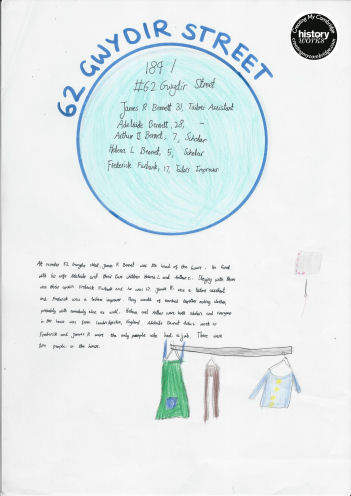 62 GWYDIR STREET
Creating My Cambridge
history
works
creatingmycambridge.com
1891
#62 Gwydir Street
James R Bennett 31, Tailors Assistant
Adelaide Bennett, 28, -
Arthur Bennet, 7, Scholar
Helena L Bennet, 5, Scholar
Frederick Furbank, 17, Tailors Improver
At number 62 Gwydir street, James R Bennet was the head of the house. He lived
with his wife Adelaide and their two children Helena L and Arthur C. Staying with them
was their cousin Frederick Furbank and he was 17. James R was a tailors assistant
and Frederick was a tailors improver. They would of worked together making clothes,
probably with somebody else as well. Helena and Arthur were both scholars and everyone
in the house was from Cambridgeshire, England. Adelaide Bennet didn't work so
Frederick and James R were the only people who had a job. There were
five people in the house.